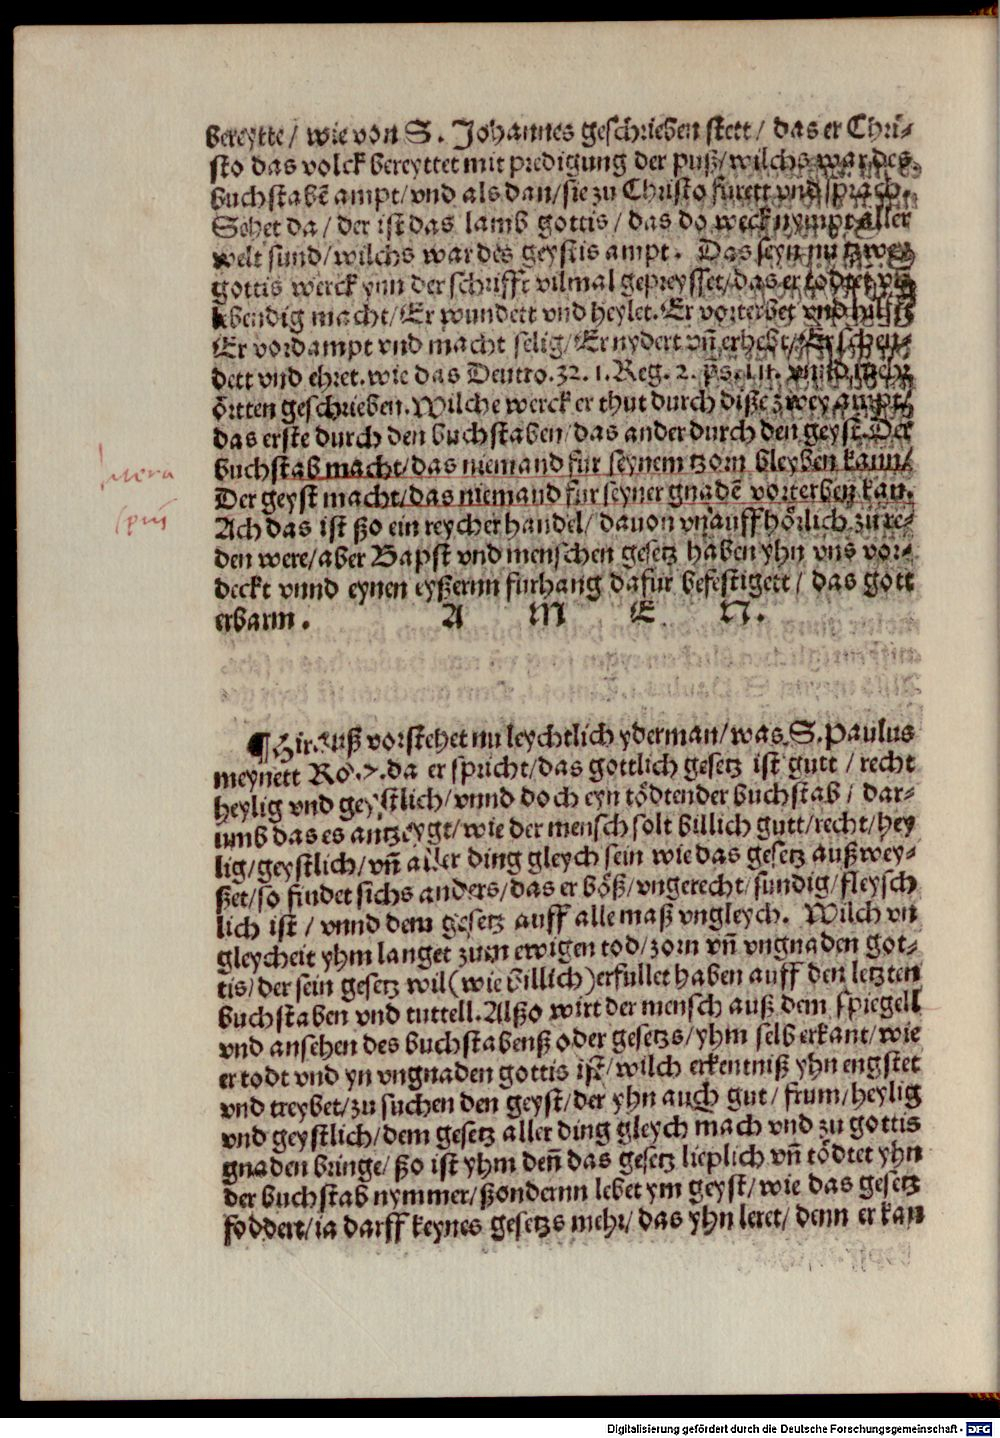 bereytte/ wie von S. Johannes geschrieben stett/ das er Chri-
sto das volck bereyttet mit predigung der puß/ wilchs war des
buchstabē ampt/ vnd als dan/ sie zu Christo fürett vnd sprach.
Sehet da/ der ist das lamb gottis/ das do weck nympt aller
welt sund/ wilchs war des geystis ampt. Das seyn nu tzwey
gottis werck ynn der schrifft vilmal gepreysset/ das er tödtet vñ
lebendig macht/ Er wundett vnd heylet. Er vorterbet vnd hilfft
Er vordampt vnd macht selig/ Er nydert vñ erhebt/ Er schen-
dett vnd ehret. wie das Deutro. 32. 1. Reg. 2. ps. vnnd mehr
örtten geschrieben. Wilche werck er thut durch diße zwey ampt/
das erste durch den buchstaben/ das ander durch den geyst. Der
buchstab macht/ das niemand fur seynem tzorn bleyben kann/
Der geyst macht/ das niemand fur seyner gnadē vorterben kan.
Ach das ist ßo ein reycher handel/ dauon vnauffhörlich zu re-
den were/ aber Bapst vnd menschen gesetz haben yhn vns vor-
deckt vnnd eynen eyßernn furhang dafur befestigett/ das gott
erbarm. A M E N.
¶ Hirauß vorstehet nu leychtlich yderman/ was S. Paulus
meynett Ro. 7. da er spricht/ das gottlich gesetz ist gutt/ recht
heylig vnd geystlich/ vnnd doch eyn tödtender buchstab/ dar-
umb das es antzeygt/ wie der mensch solt billich gutt/ recht/ hey
lig/ geystlich/ vñ aller ding gleych sein wie das gesetz außwey-
ßet/ so findet sichs anders/ das er böß/ vngerecht/ sundig/ fleysch
lich ist/ vnnd dem gesetz auff alle maß vngleych. Wilch vn
gleycheit yhm langet zum ewigen tod/ zorn vñ vngnaden got-
tis/ der sein gesetz wil (wie billich) erfullet haben auff den letzten
buchstaben vnd tuttell. Alßo wirt der mensch auß dem spiegell
vnd ansehen des buchstabenß oder gesetzs/ yhm selb erkant/ wie
er todt vnd yn vngnaden gottis ist/ wilch erkentniß yhn engstet
vnd treybet/ zu suchen den geyst/ der yhn auch gut/ frum/ heylig
vnd geystlich/ dem gesetz aller ding gleych mach vnd zu gottis
gnaden bringe/ ßo ist yhm deñ das gesetz lieplich vñ tödtet yhn
der buchstab nymmer/ ßondernn lebet ym geyst/ wie das gesetz
foddert/ ia darff keynes gesetzs mehr/ das yhn leret/ denn er kan
Digitalisierung gefördert durch die Deutsche Forschungsgemeinschaft - DFG